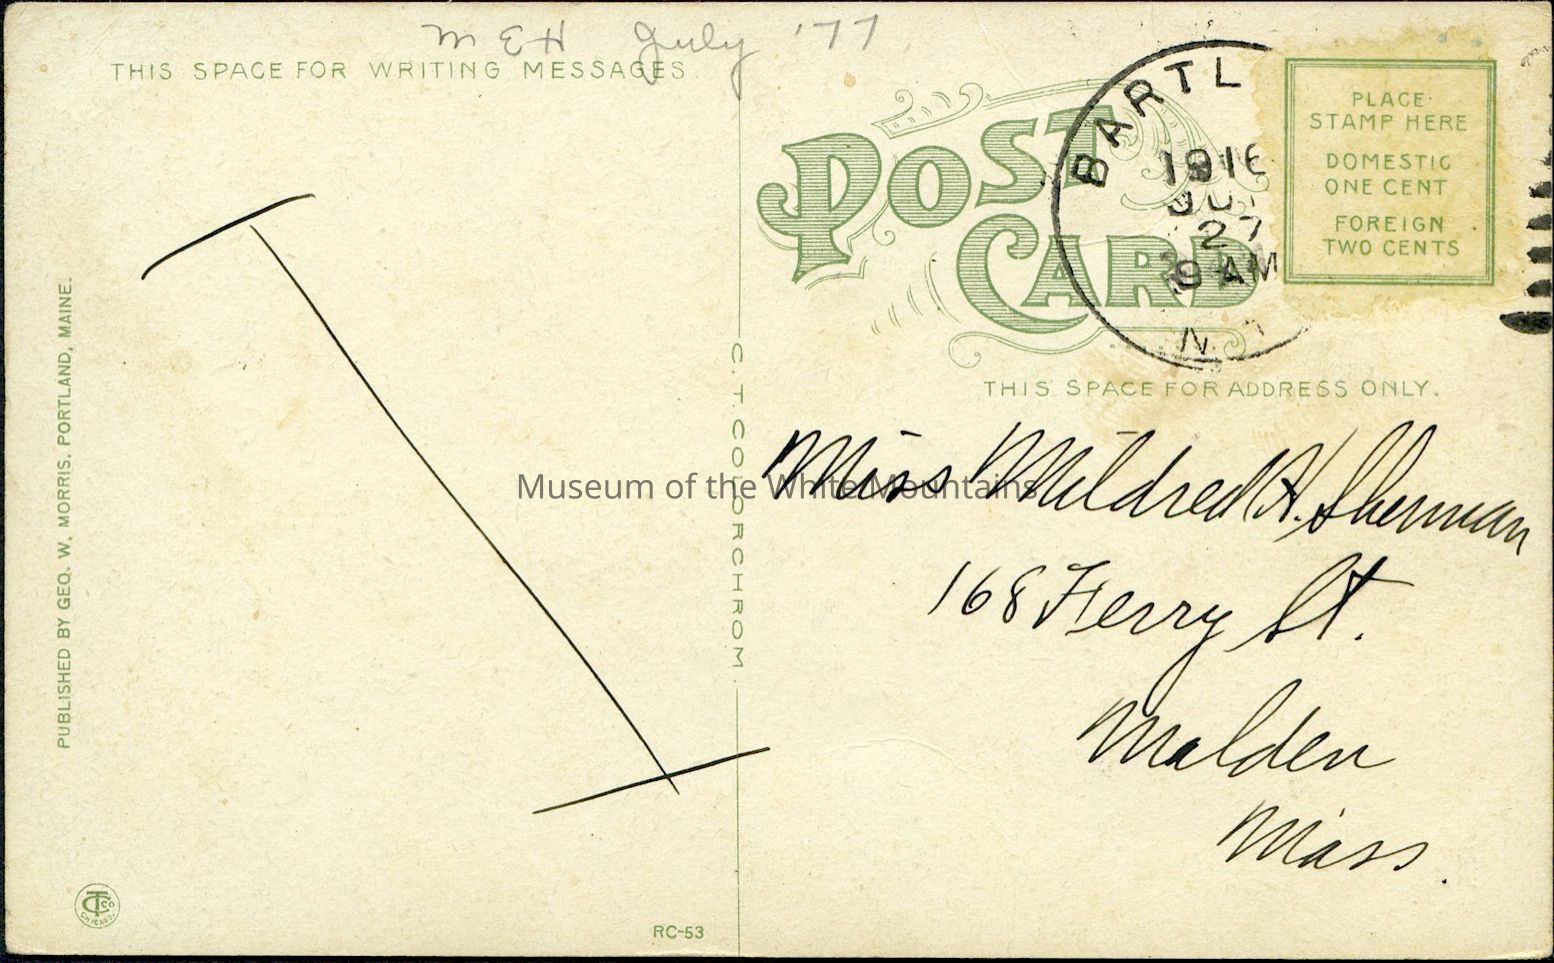 M E H July '77
THIS SPACE FOR WRITING MESSAGES.
POST
CARD
BARTL
1916
27
9 AM
N.
PLACE
STAMP HERE
DOMESTIC
ONE CENT
FOREIGN
TWO CENTS
THIS SPACE FOR ADDRESS ONLY.
Miss Mildred H. Sherman
168 Ferry St.
Malden
Mass.
Museum of the White Mountains
C. T. COLORCHROM.
PUBLISHED BY GEO. W. MORRIS. PORTLAND, MAINE.
CT Co
CHICAGO
RC-53